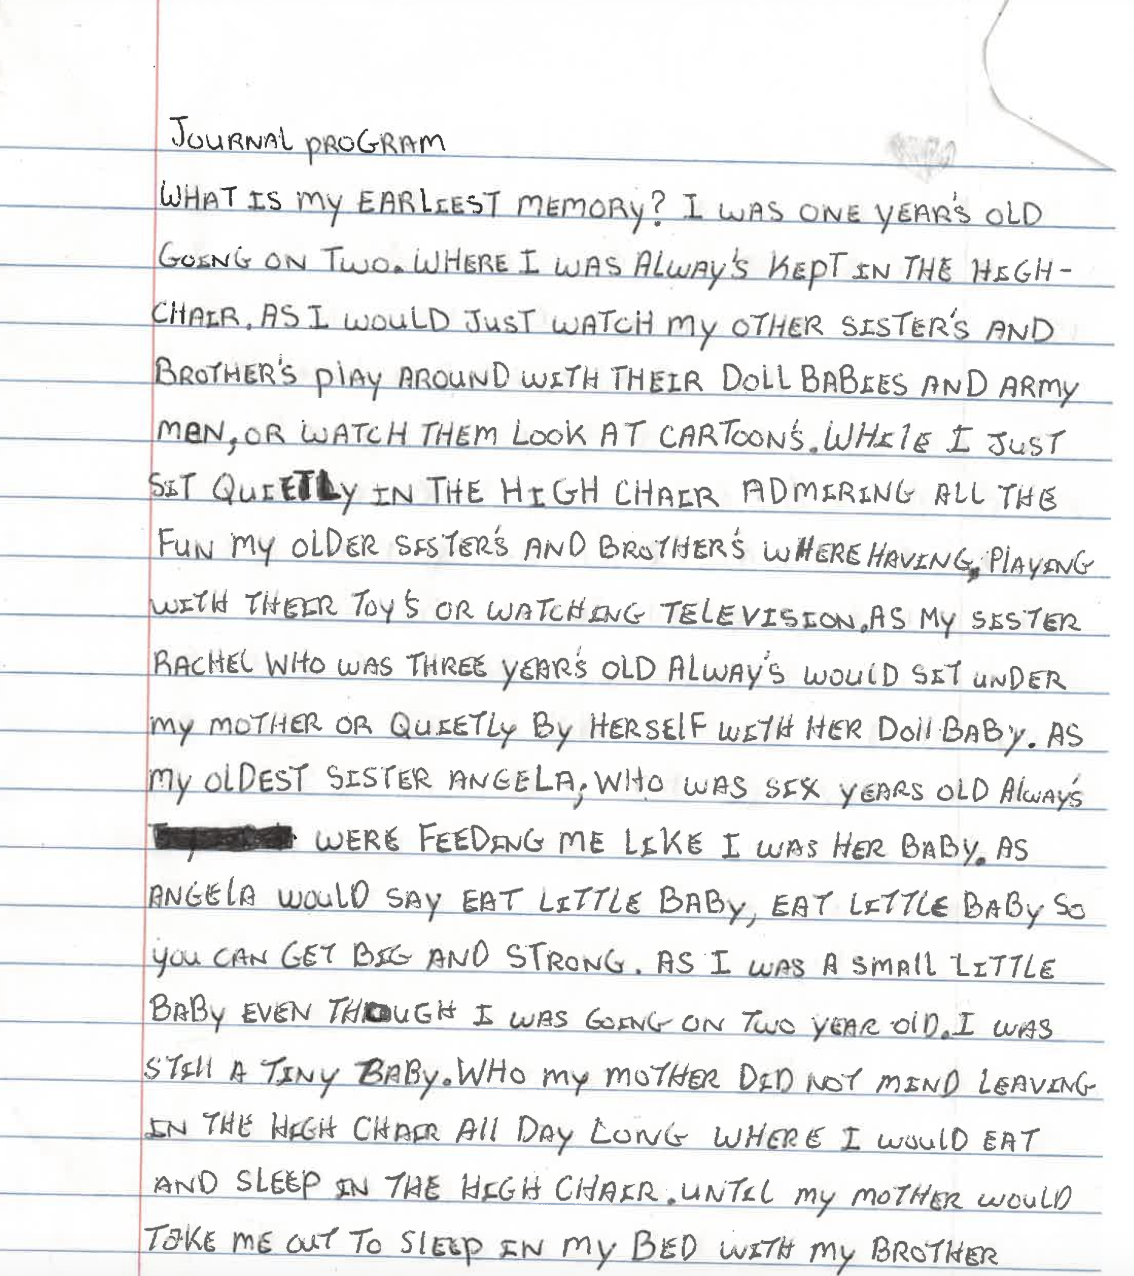 JOURNAL PROGRAM
WHAT IS my EARLIEST MEMORY? I WAS ONE YEAR'S OLD
GOING ON TWO. WHERE I WAS ALWAY'S KEPT IN THE HIGH-
CHAIR. AS I WOULD JUST WATCH my OTHER SISTER'S AND
BROTHER'S PLAY AROUND WITH THEIR DOLL BABIES AND ARMY
MEN, OR WATCH THEM LOOK AT CARTOON'S. WHILE I JUST
SIT QUIETLY IN THE HIGH CHAIR ADMIRING ALL THE
FUN MY OLDER SISTER'S AND BROTHER'S WHERE HAVING, PLAYING
WITH THEIR TOY'S OR WATCHING TELEVISION. AS MY SISTER
RACHEL WHO WAS THREE YEAR'S OLD ALWAY'S WOULD SIT UNDER
my MOTHER OR QUIETLY BY HERSELF WITH HER DOLL BABY. AS
my OLDEST SISTER ANGELA, WHO WAS SIX YEARS OLD ALWAY'S
WERE FEEDING ME LIKE I WAS HER BABY. AS
ANGELA WOULD SAY EAT LITTLE BABY, EAT LITTLE BABY SO
you CAN GET BIG AND STRONG. AS I WAS A SMALL LITTLE
BABY EVEN THOUGH I WAS GOING ON TWO YEAR OLD. I WAS
STILL A TINY BABY. WHO my MOTHER DID NOT MIND LEAVING
IN THE HIGH CHAIR ALL DAY LONG WHERE I WOULD EAT
AND SLEEP IN THE HIGH CHAIR. UNTIL my MOTHER WOULD
TAKE ME OUT TO SLEEP IN my BED WITH my BROTHER